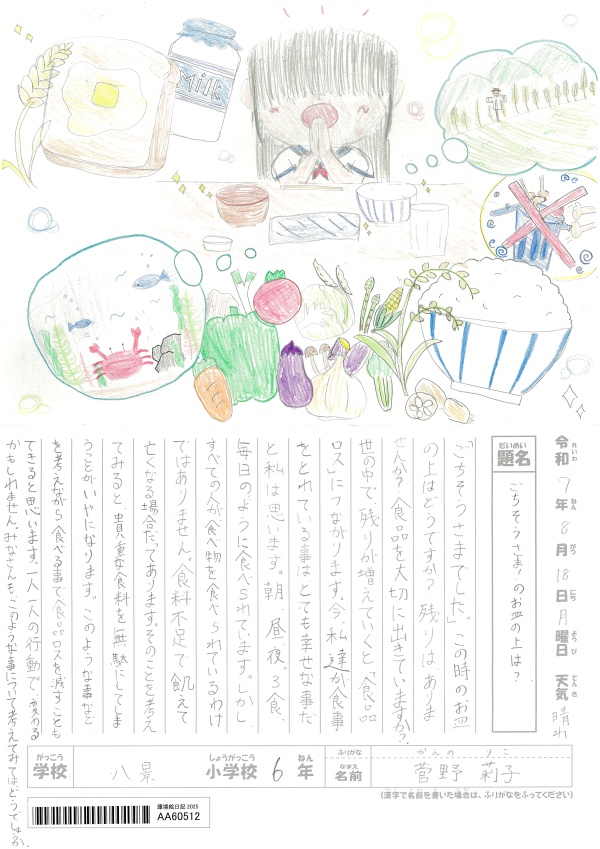 Milk
令和7年8月18日月曜日 天気 晴れ
れいわ ねん がつ にち ようび てんき
だいめい
題名
ごちそうさま!のお皿の上は?
「ごちそうさまでした」この時のお皿
の上はどうですか?残りはありま
せんか?食品を大切に出きていますか?
世の中で、残りが増えていくと「食品
ロス」につながります。今、私達が食事
をとれている事はとても幸せな事だ
と私は思います。朝、昼、夜、3食、
毎日のように食べられています。しかし、
すべての人が食べ物を食べられているわけ
ではありません。食料不足で飢えて
亡くなる場合だってあります。そのことを考え
てみると貴重な食料を無駄にしてしま
うことがいやになります。このような事など
を考えながら食べる事で食品ロスを減すことも
できると思います。一人一人の行動で、変わる
かもしれません。みなさんも、このような事について考えてみてはどうでしょうか。
がっこう しょうがっこう ねん ふりがな かんの りこ
学校 八景 小学校 6年 なまえ 名前 菅野 莉子
(漢字で名前を書いた場合は、ふりがなをふってください)
環境絵日記 2025
AA60512